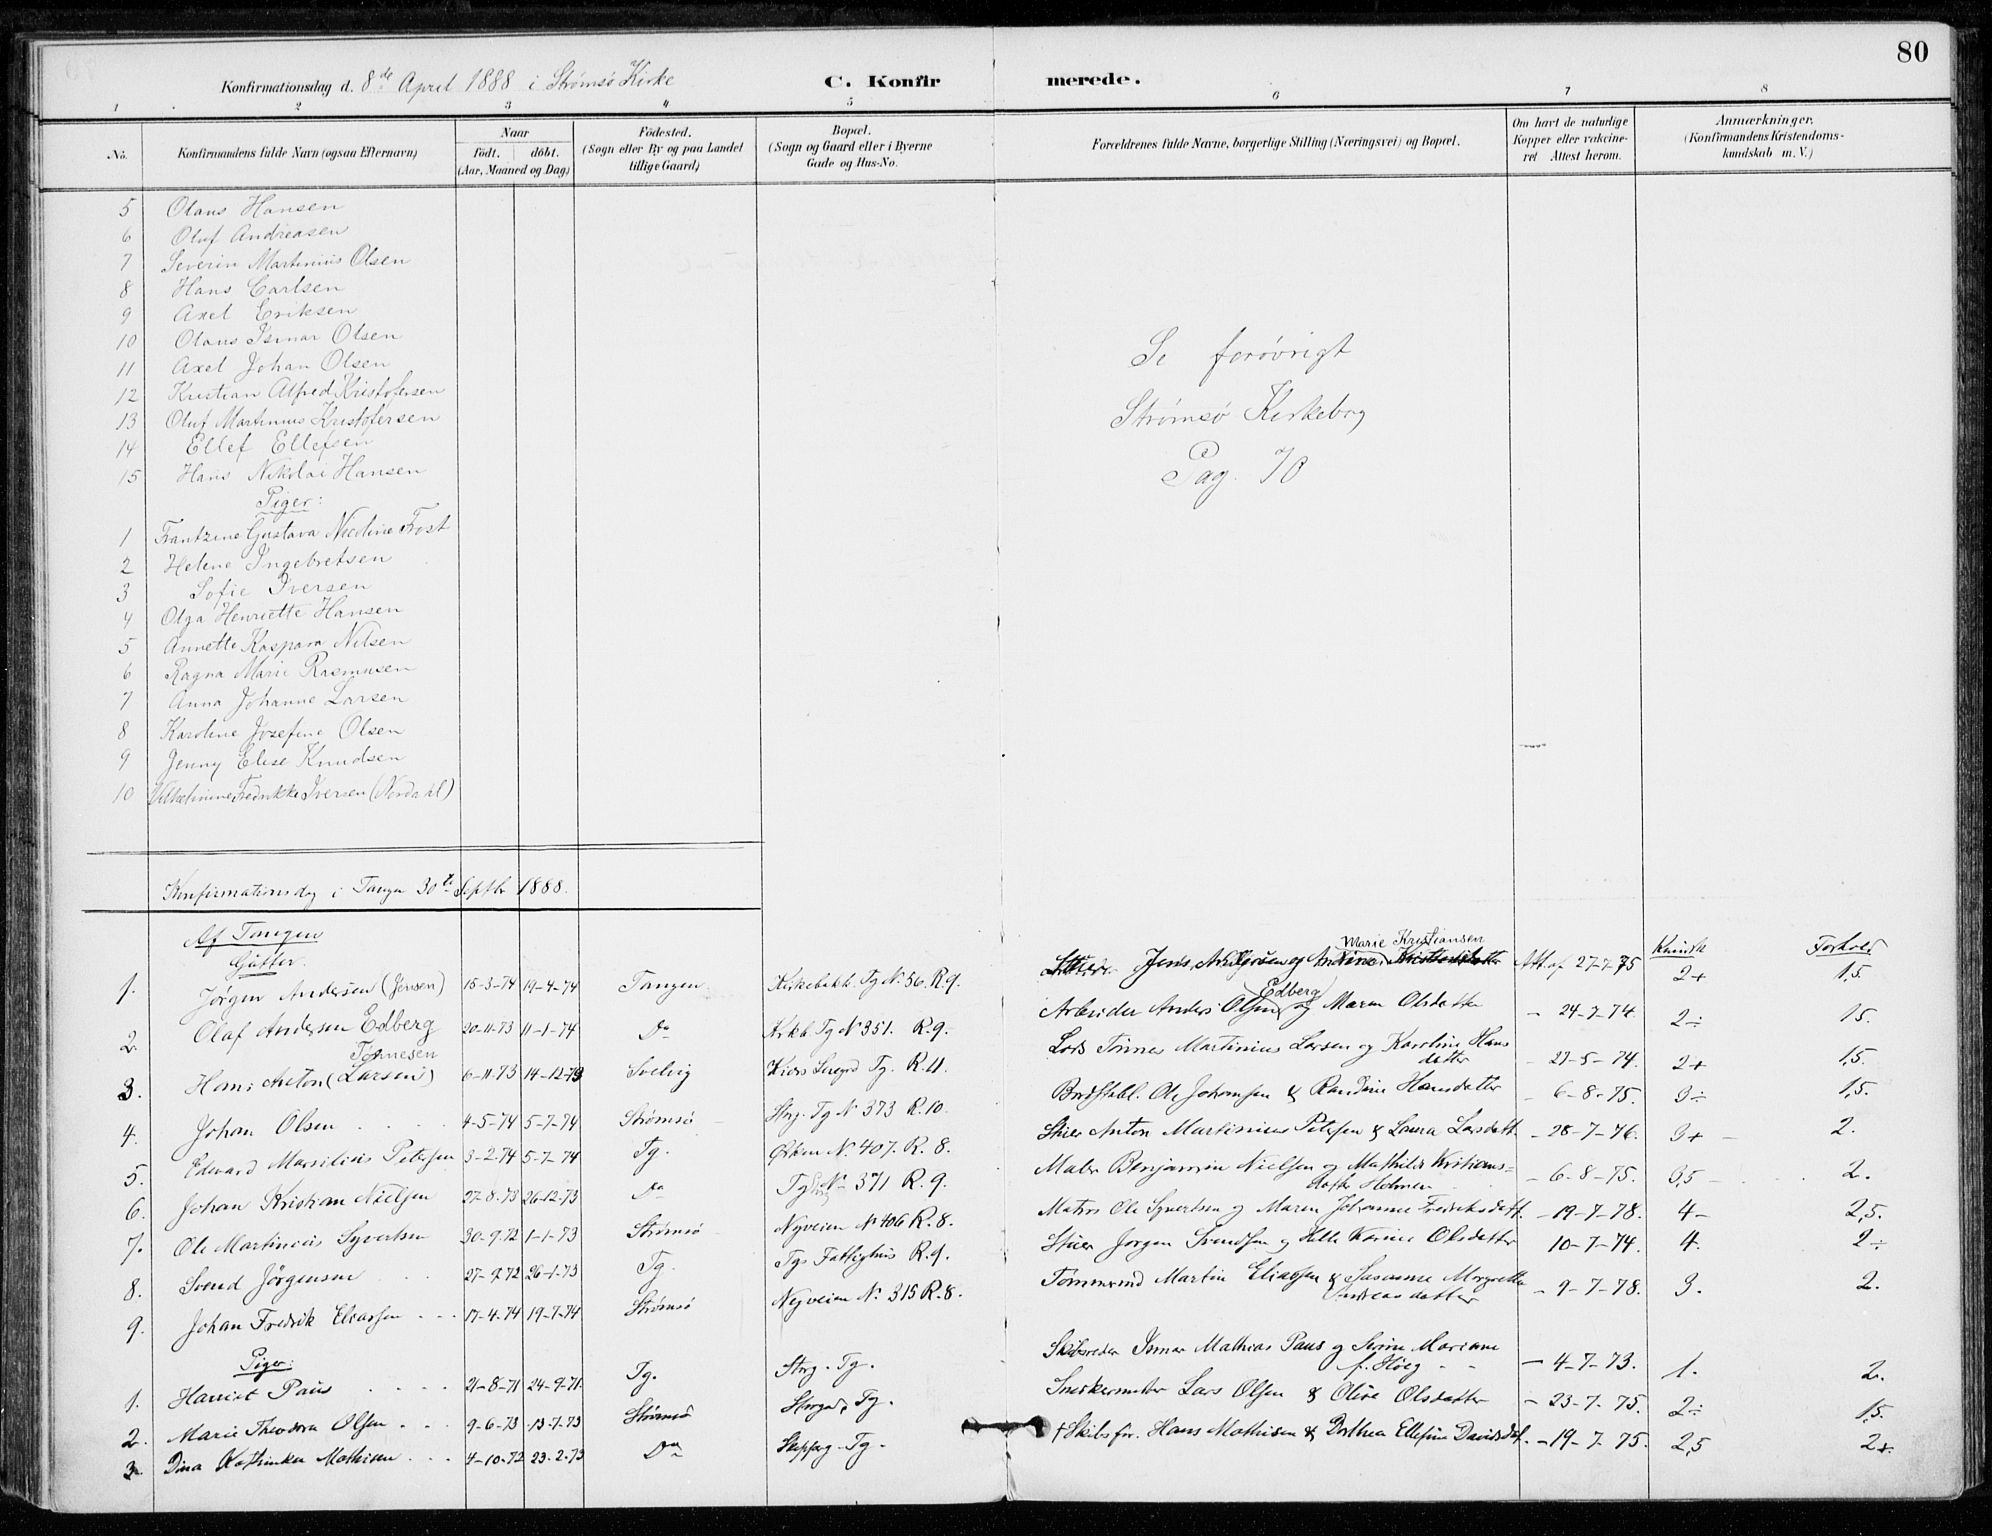 80
Konfirmationsdag d. 8de April 1888 i Strømsø Kirke C. Konfirmerede.
1 2 3 4 5 6 7 8
No.
Konfirmandens fulde Navn (ogsaa Efternavn)
Naar
født. døbt.
(Aar, Maaned og Dag)
Fødested.
(Sogn eller By og paa Landet
tillige Gaard)
Bopæl.
(Sogn og Gaard eller i Byerne
Gade og Hus-No.
Forældrenes fulde Navne, borgerlige Stilling (Næringsvei) og Bopæl.
Om havt de naturlige
Kopper eller vakcine-
ret Attest herom.
Anmærkninger,
(Konfirmandens Kristendoms-
kundskab m. V.)
5 Olaus Hansen
6 Oluf Andreasen
7 Severin Martinius Olsen
8 Hans Carlsen
9 Axel Eriksen
10 Olaus Ismar Olsen
11 Axel Johan Olsen
12 Kristian Alfred Kristofersen
13 Oluf Martinius Kristofersen
14 Ellef Ellefsen
15 Hans Nikolai Hansen
Se forøvrigt
Strømsø Kirkebog
Pag. 70
Piger:
1 Frantzine Gustava Nicoline Frost
2 Helene Ingebretsen
3 Sofie Iversen
4 Olga Henriette Hansen
5 Annette Kaspara Nilsen
6 Ragna Marie Rasmusen
7 Anna Johanne Larsen
8 Karoline Josefine Olsen
9 Jenny Elise Knudsen
10 Vilhelmine Fredrikke Iversen (Nordahl)
Konfirmationsdag i Tangen 30te Septbr 1888.
Af Tangen
Gutter.
Kundsk Forhold
Marie Kristiansen
1. Jørgen Andersen (Jensen) 15-3-74 19-4-74 Tangen Kirkebakk. Tg No 36. R.9. Jens og Att. af 27-7-75 2+ 1,5
Edberg
2. Olaf Andersen Edberg 20-11-73 11-1-74 Do Kirkb Tg No 351. R.9. Arbeider Anders Olsen og Maren Olsdatter - 24-7-74 2÷ 15.
Tønnesen
3. Hans Anton (Larsen) 6-11-73 14-12-73 Svelvig Tg. R.11. Lods Tønnes Martinius Larsen og Karoline Hans
datter - 27-5-74. 2+ 1,5.
4. Johan Olsen 4-5-74 5-7-74 Strømsø Storg. Tg No 373 R.10. Bordstabl. Ole Johansen & Randine Hansdatter - 6-8-75. 3÷ 1,5.
5. Edvard Marsilius Petersen 3-2-74 5-7-74 Tg. Ørken No. 407. R. 8. Stuer Anton Martinius Petersen & Laura Larsdatt. - 28-7-76. 3+ 2.
6. Johan Kristian Nielsen 27-8-73 26-12-73 Do Tg No 371 R. 9. Maler Benjamin Nielsen og Mathilde Kristians=
datter Holmen - 6-8-75. 3,5 2.
7. Ole Martinius Syvertsen 30-9-72 1-1-73 Strømsø Nyveien No 406 R.8. Matros Ole Syvertsen og Maren Johanne Fredriksdatt. - 19-7-78. 4- 2,5.
8. Svend Jørgensen 27-9-72 26-1-73 Tg. Tgs Fattighus R.9. Stuer Jørgen Svendsen og Helle Karine Olsdatter 10-7-74. 4. 2÷
9. Johan Fredrik Eliassen 17-4-74 19-7-74 Strømsø Nyveien No. 315 R.8. Tømmermd Martin Eliassen & Susanne Margrethe
Andreasdatter - 9-7-78. 3. 2.
Piger:
1. Harriet Paus 21-8-71 24-9-71. Tg. Storg. Tg. Skibsreder Ismar Mathias Paus og Serine Mariane
f. Høeg - 4-7-73. 1. 2.
2. Marie Theodora Olsen 9-6-73 13-7-73 Strømsø Storgad. Tg. Snedkermester Lars Olsen & Oline Olsdatter - 23-7-75. 2÷ 1,5.
3. Dina Kathinka Mathisen 4-10-72 23-2-73 Do Skipperg. Tg. † Skibsfør. Hans Mathisen & Dorthea Ellefine Davidsdat. - 19-7-75. 2,5 2+.